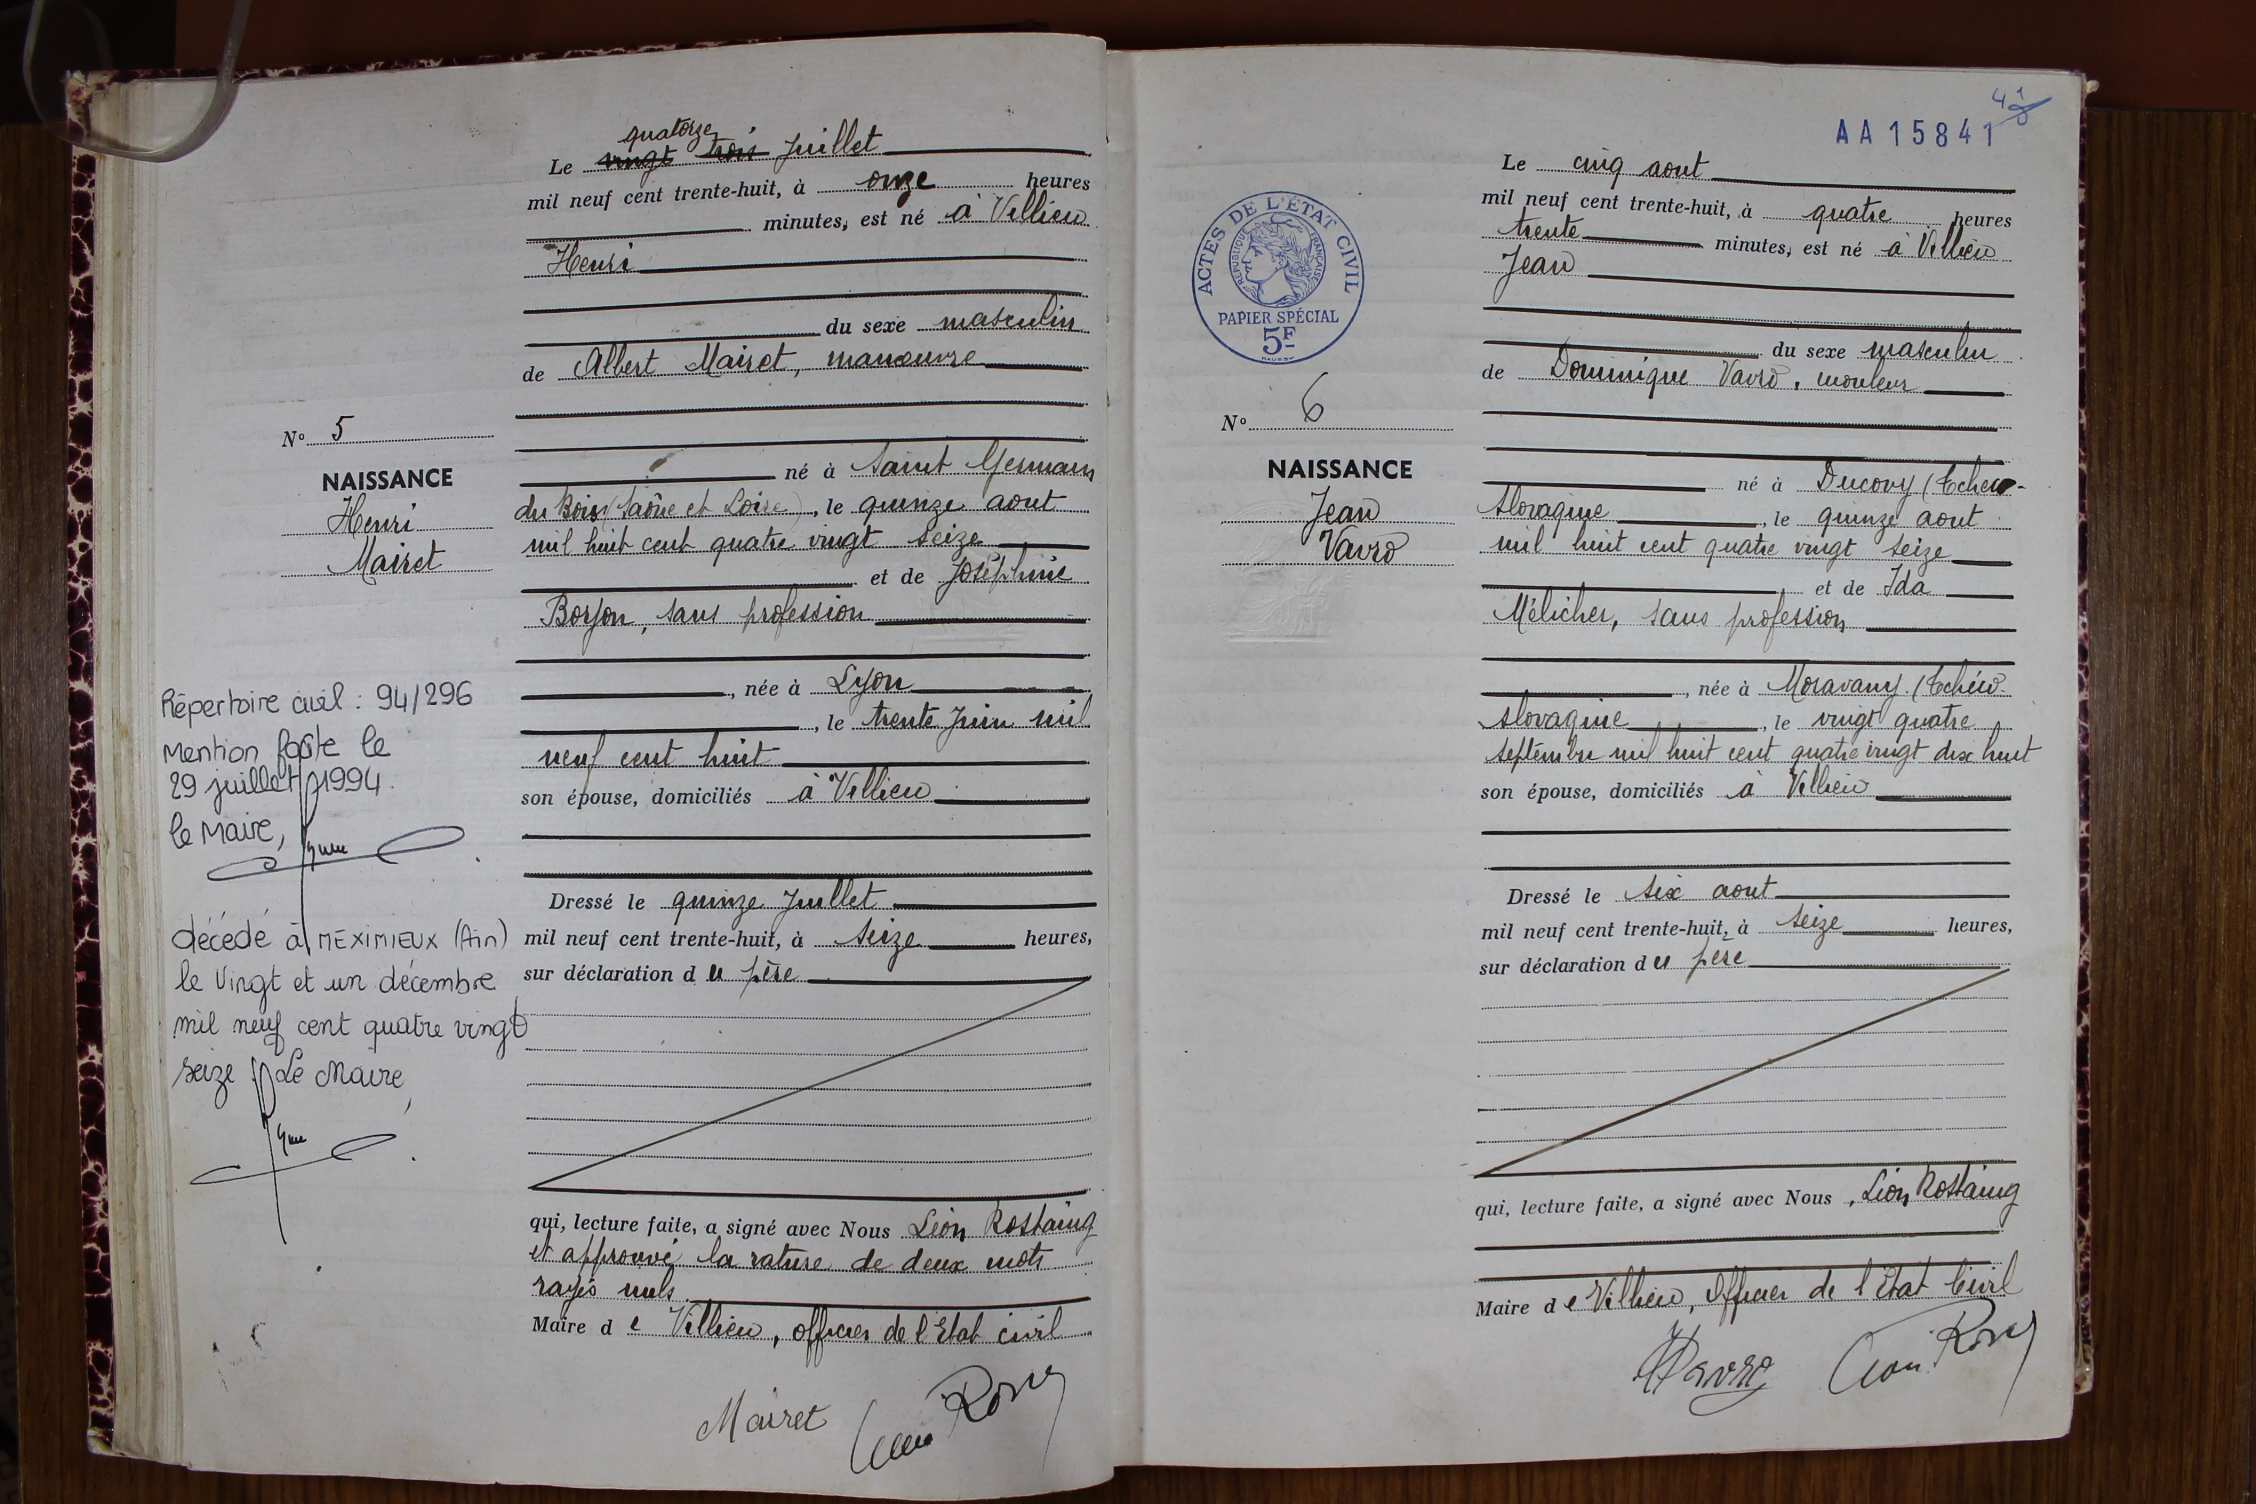 quatorze
Le vingt trois Juillet
mil neuf cent trente-huit, à onze heures
minutes, est né à Villieu
Henri
du sexe masculin
de Albert Mairet, manœuvre
N° 5
NAISSANCE
Henri
Mairet
né à Saint Germain
du Bois (Saône et Loire), le quinze aout
mil huit cent quatre vingt seize
et de Joséphine
Borjon, sans profession
, née à Lyon
, le trente Juin mil
neuf cent huit
son épouse, domiciliés à Villieu
Répertoire civil : 94/296
Mention faite le
29 juillet 1994.
le Maire,
Dressé le quinze Juillet
mil neuf cent trente-huit, à seize heures,
sur déclaration du père
décédé à MEXIMIEUX (Ain)
le Vingt et un décembre
mil neuf cent quatre vingt
seize Le Maire,
qui, lecture faite, a signé avec Nous Léon Rostaing
et approuvé la rature de deux mots
rayés nuls
Maire de Villieu, officier de l'Etat civil
Mairet
AA15841
Le cinq aout
mil neuf cent trente-huit, à quatre heures
trente minutes, est né à Villieu
Jean
ACTES DE L'ÉTAT CIVIL
RÉPUBLIQUE FRANÇAISE
PAPIER SPÉCIAL
5F
du sexe masculin
de Dominique Vavro, mouleur
N° 6
NAISSANCE
Jean
Vavro
né à Ducovy (Tchéco-
slovaquie, le quinze aout
mil huit cent quatre vingt seize
et de Ida
Mélicher, sans profession
, née à Moravany (Tchéco
slovaquie, le vingt quatre
septembre mil huit cent quatre vingt dix huit
son épouse, domiciliés à Villieu
Dressé le six aout
mil neuf cent trente-huit, à seize heures,
sur déclaration du père
qui, lecture faite, a signé avec Nous, Léon Rostaing
Maire de Villieu, Officier de l'Etat Civil
Vavro